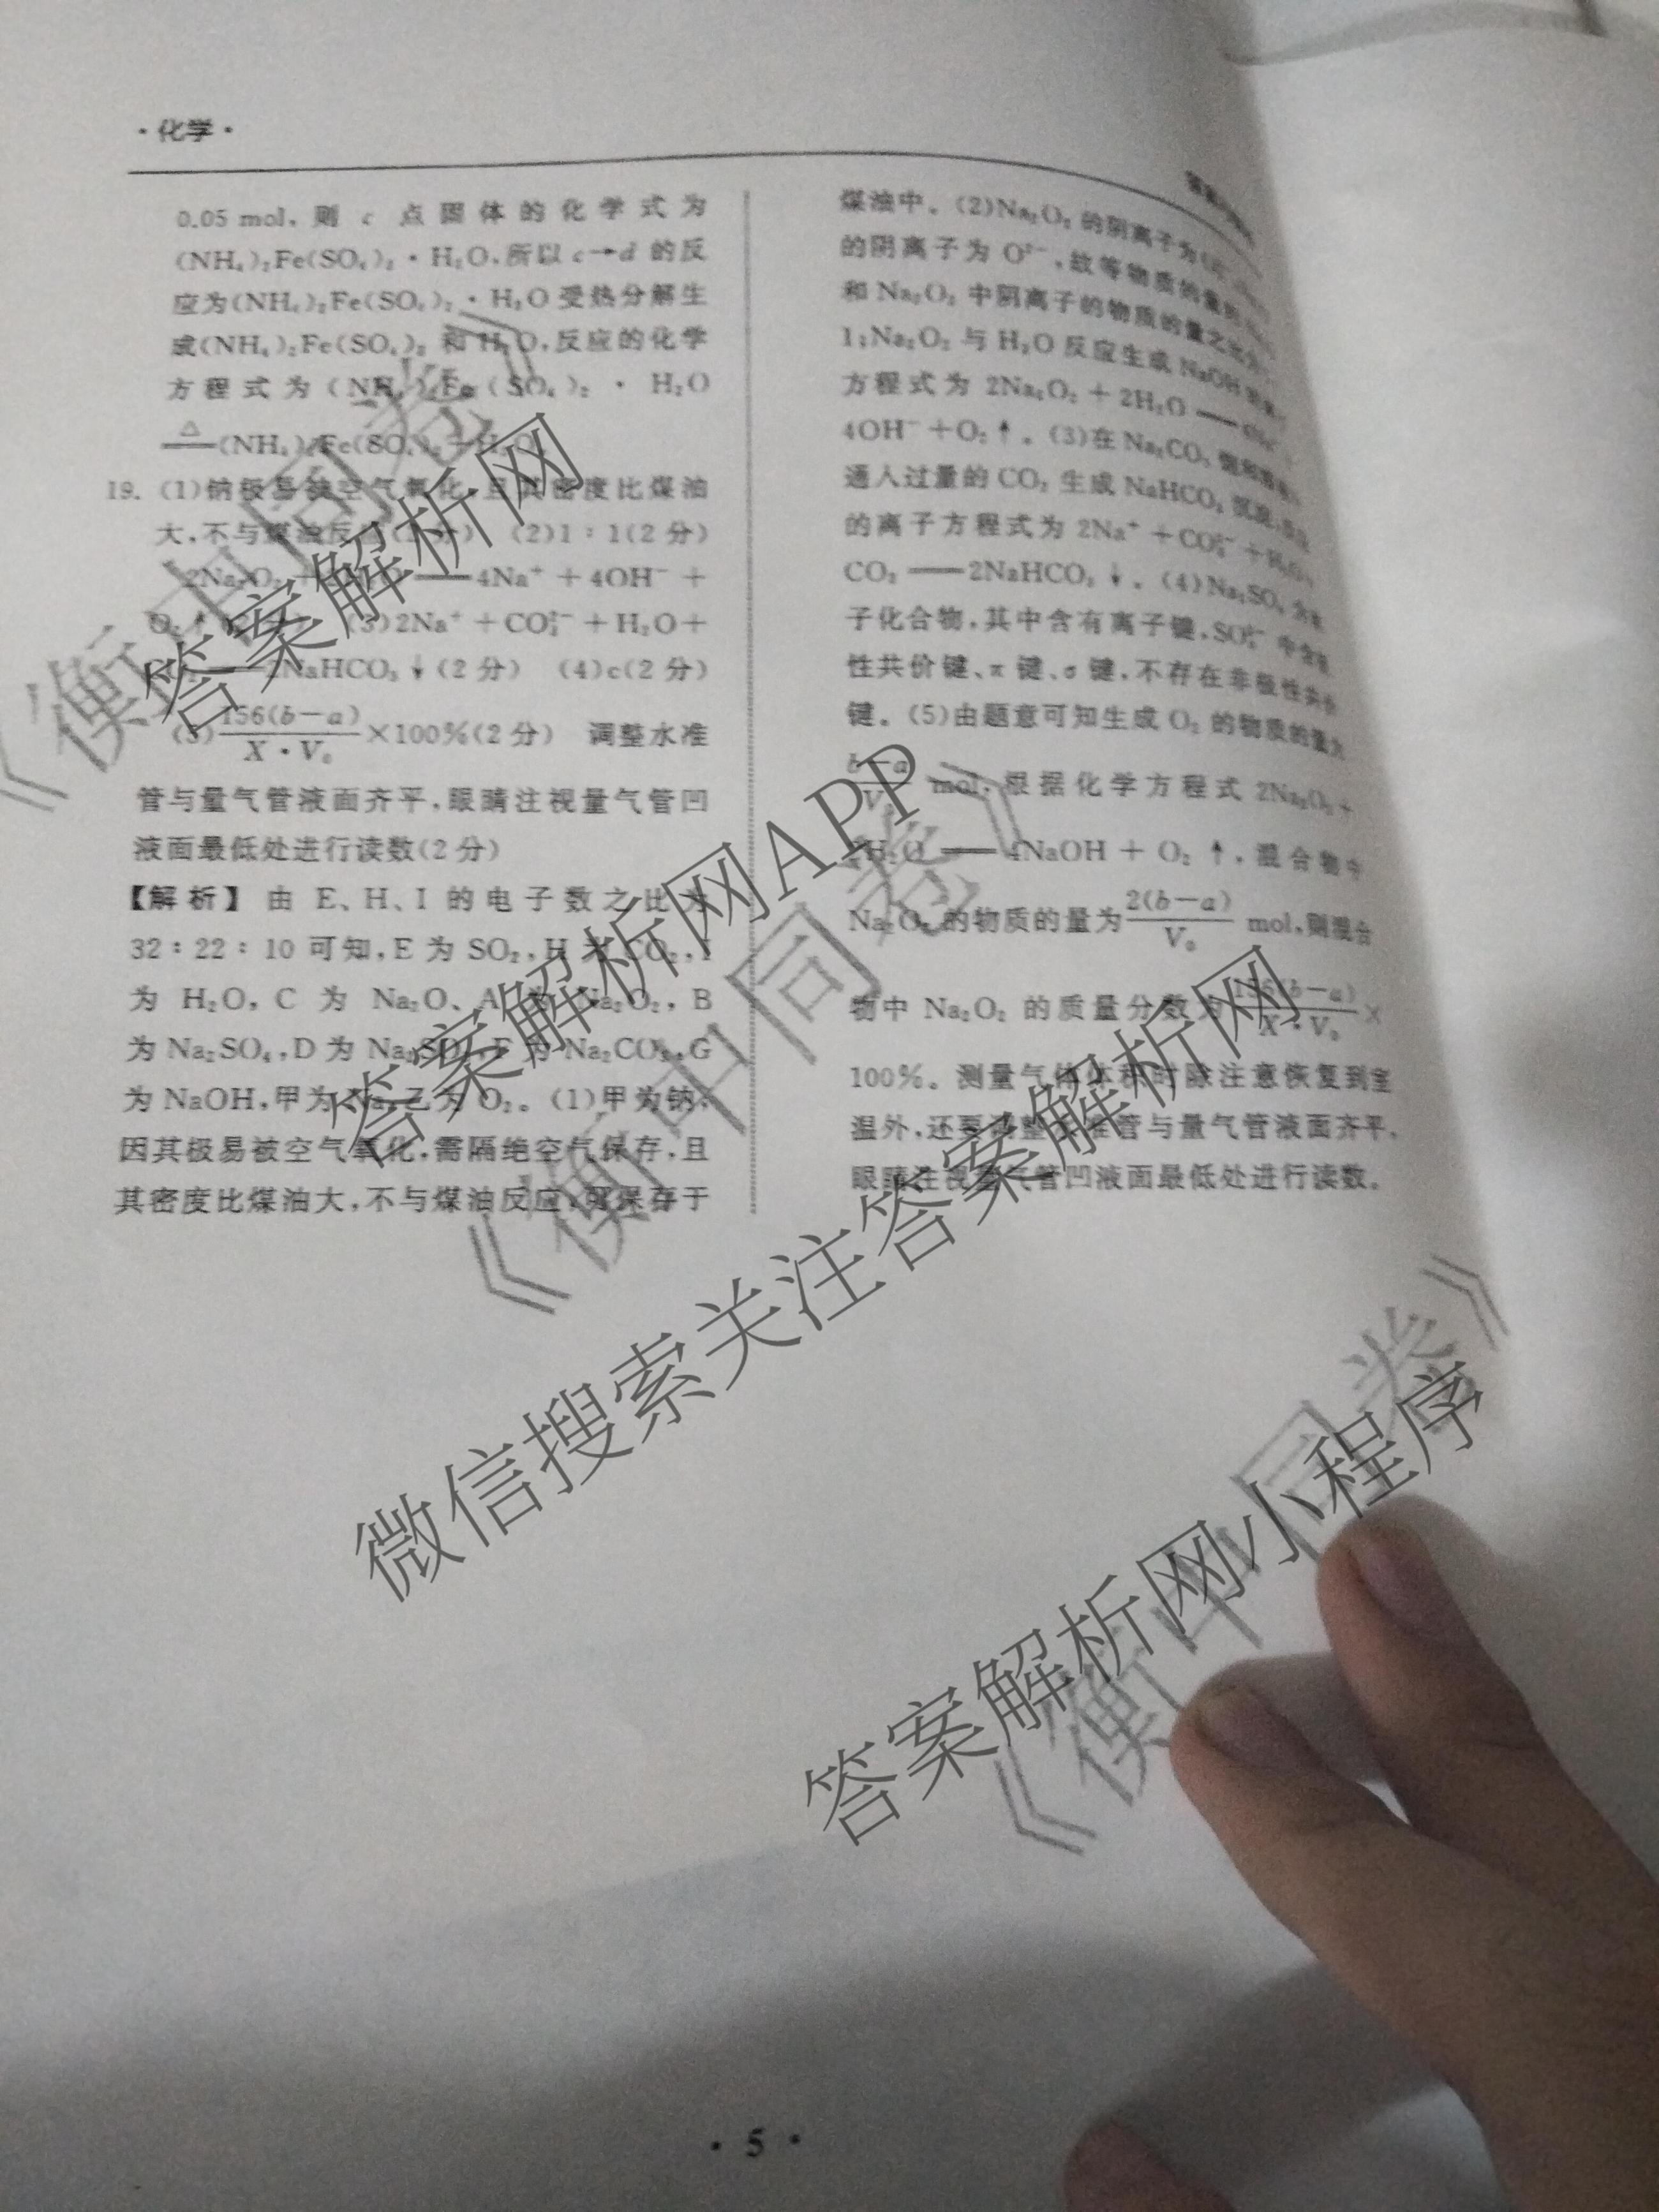 ·化学·
0.05 mol, 则 c 点固体的化学式为
(NH₄)₂Fe(SO₄)₂·H₂O,所以 c→d 的反
应为(NH₄)₂Fe(SO₄)₂·H₂O 受热分解生
成(NH₄)₂Fe(SO₄)₂ 和 H₂O,反应的化学
方程式为 (NH₄)₂Fe(SO₄)₂ · H₂O
△ ══(NH₄)₂Fe(SO₄)₂+H₂O
19. (1)钠极易被空气氧化,且其密度比煤油
大,不与煤油反应(2分) (2)1∶1(2分)
2Na₂O₂+2H₂O══4Na⁺+4OH⁻+
O₂↑(2分) (3)2Na⁺+CO₃²⁻+H₂O+
CO₂══2NaHCO₃↓(2分) (4)c(2分)
(5) 156(b-a)/(X·V₀) ×100%(2分) 调整水准
管与量气管液面齐平,眼睛注视量气管凹
液面最低处进行读数(2分)
【解析】由 E、H、I 的电子数之比为
32∶22∶10 可知,E 为 SO₂,H 为 CO₂,I
为 H₂O, C 为 Na₂O、A 为 Na₂O₂, B
为 Na₂SO₄,D 为 Na₂SO₃,F 为 Na₂CO₃,G
为 NaOH,甲为 Na,乙为 O₂。(1)甲为钠,
因其极易被空气氧化,需隔绝空气保存,且
其密度比煤油大,不与煤油反应,可保存于
煤油中。(2)Na₂O₂ 的阴离子为
的阴离子为 O²⁻,故等物质的量的
和 Na₂O₂ 中阴离子的物质的量之比为
1;Na₂O₂ 与 H₂O 反应生成 NaOH
方程式为 2Na₂O₂+2H₂O══
4OH⁻+O₂↑。(3)在 Na₂CO₃ 饱和溶液
通入过量的 CO₂ 生成 NaHCO₃ 沉淀,
的离子方程式为 2Na⁺+CO₃²⁻+H₂O+
CO₂══2NaHCO₃↓。(4)Na₂SO₄ 为离
子化合物,其中含有离子键,SO₄²⁻ 中含
性共价键、π 键、σ 键,不存在非极性共价
键。(5)由题意可知生成 O₂ 的物质的量为
(b-a)/V₀ mol,根据化学方程式 2Na₂O₂+
2H₂O══4NaOH+O₂↑,混合物中
Na₂O₂ 的物质的量为 2(b-a)/V₀ mol,则混合
物中 Na₂O₂ 的质量分数为 156(b-a)/(X·V₀) ×
100%。测量气体体积时除注意恢复到室
温外,还要调整水准管与量气管液面齐平,
眼睛注视量气管凹液面最低处进行读数。
·5·
《衡中同卷》
《衡中同卷》
《衡中同卷》
答案解析网
答案解析网APP
微信搜索关注答案解析网
答案解析网小程序